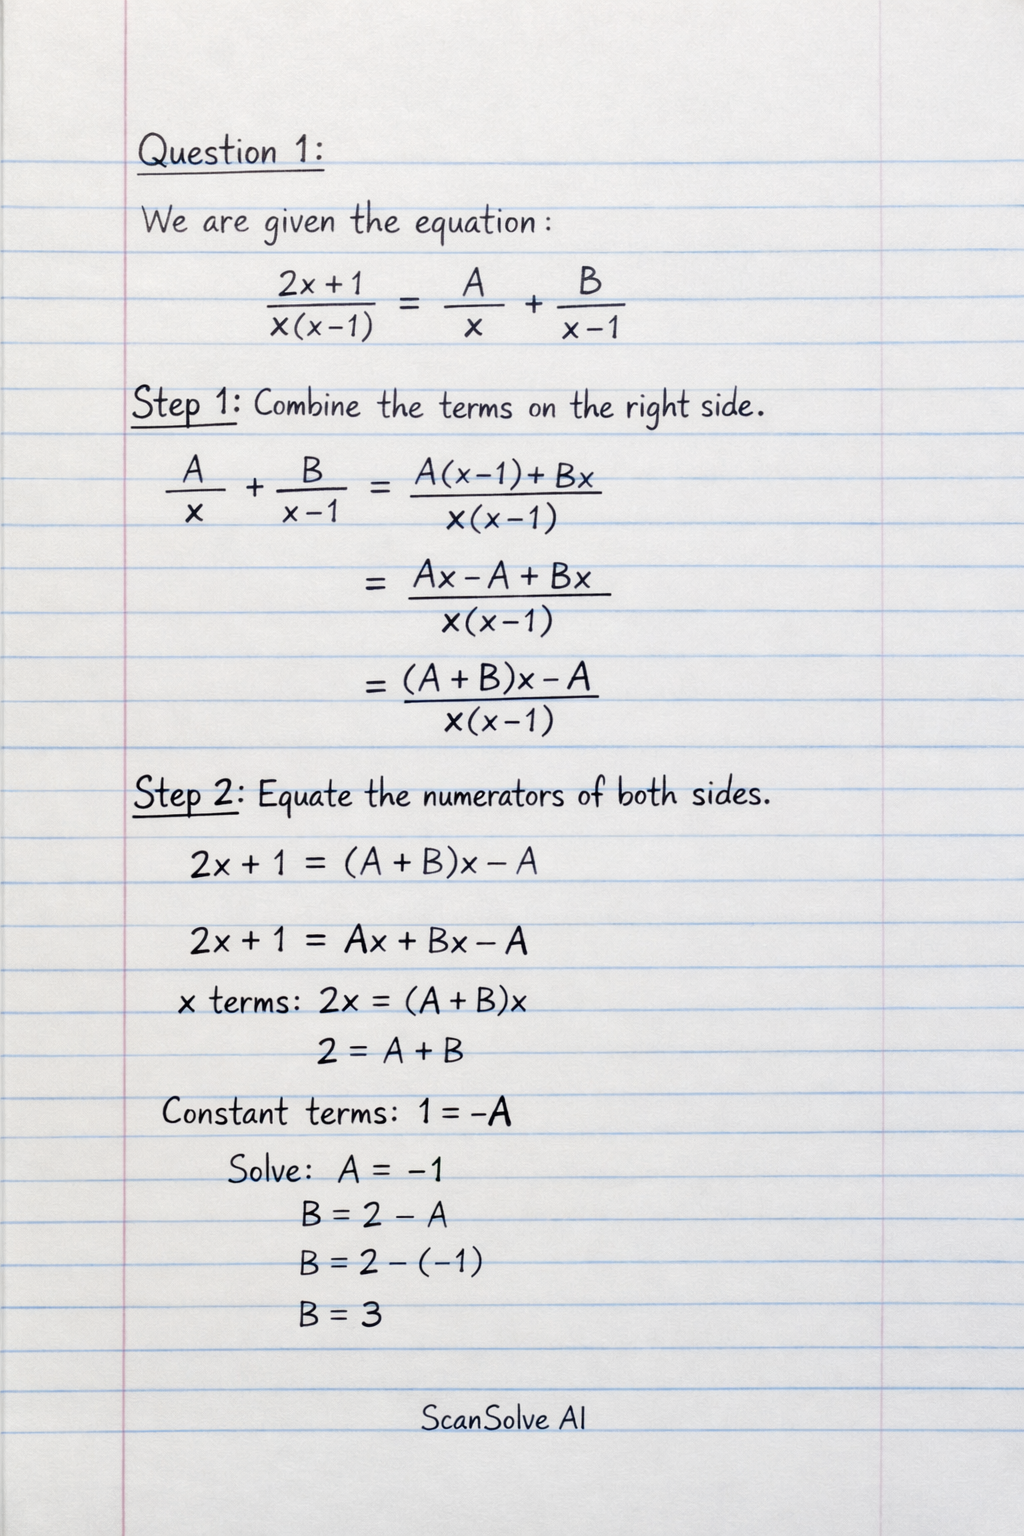 Question 1:
We are given the equation:
(2x+1)/(x(x-1)) = A/x + B/(x-1)
Step 1: Combine the terms on the right side.
A/x + B/(x-1) = (A(x-1)+Bx)/(x(x-1))
= (Ax-A+Bx)/(x(x-1))
= ((A+B)x-A)/(x(x-1))
Step 2: Equate the numerators of both sides.
2x+1 = (A+B)x-A
2x+1 = Ax+Bx-A
x terms: 2x = (A+B)x
2 = A+B
Constant terms: 1 = -A
Solve: A = -1
B = 2 - A
B = 2 - (-1)
B = 3
ScanSolve AI